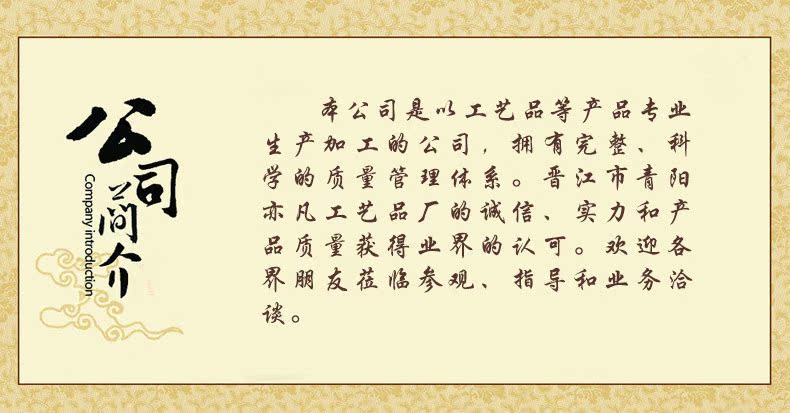 公司简介
Company introduction
本公司是以工艺品等产品专业
生产加工的公司，拥有完整、科
学的质量管理体系。晋江市青阳
亦凡工艺品厂的诚信、实力和产
品质量获得业界的认可。欢迎各
界朋友莅临参观、指导和业务洽
谈。